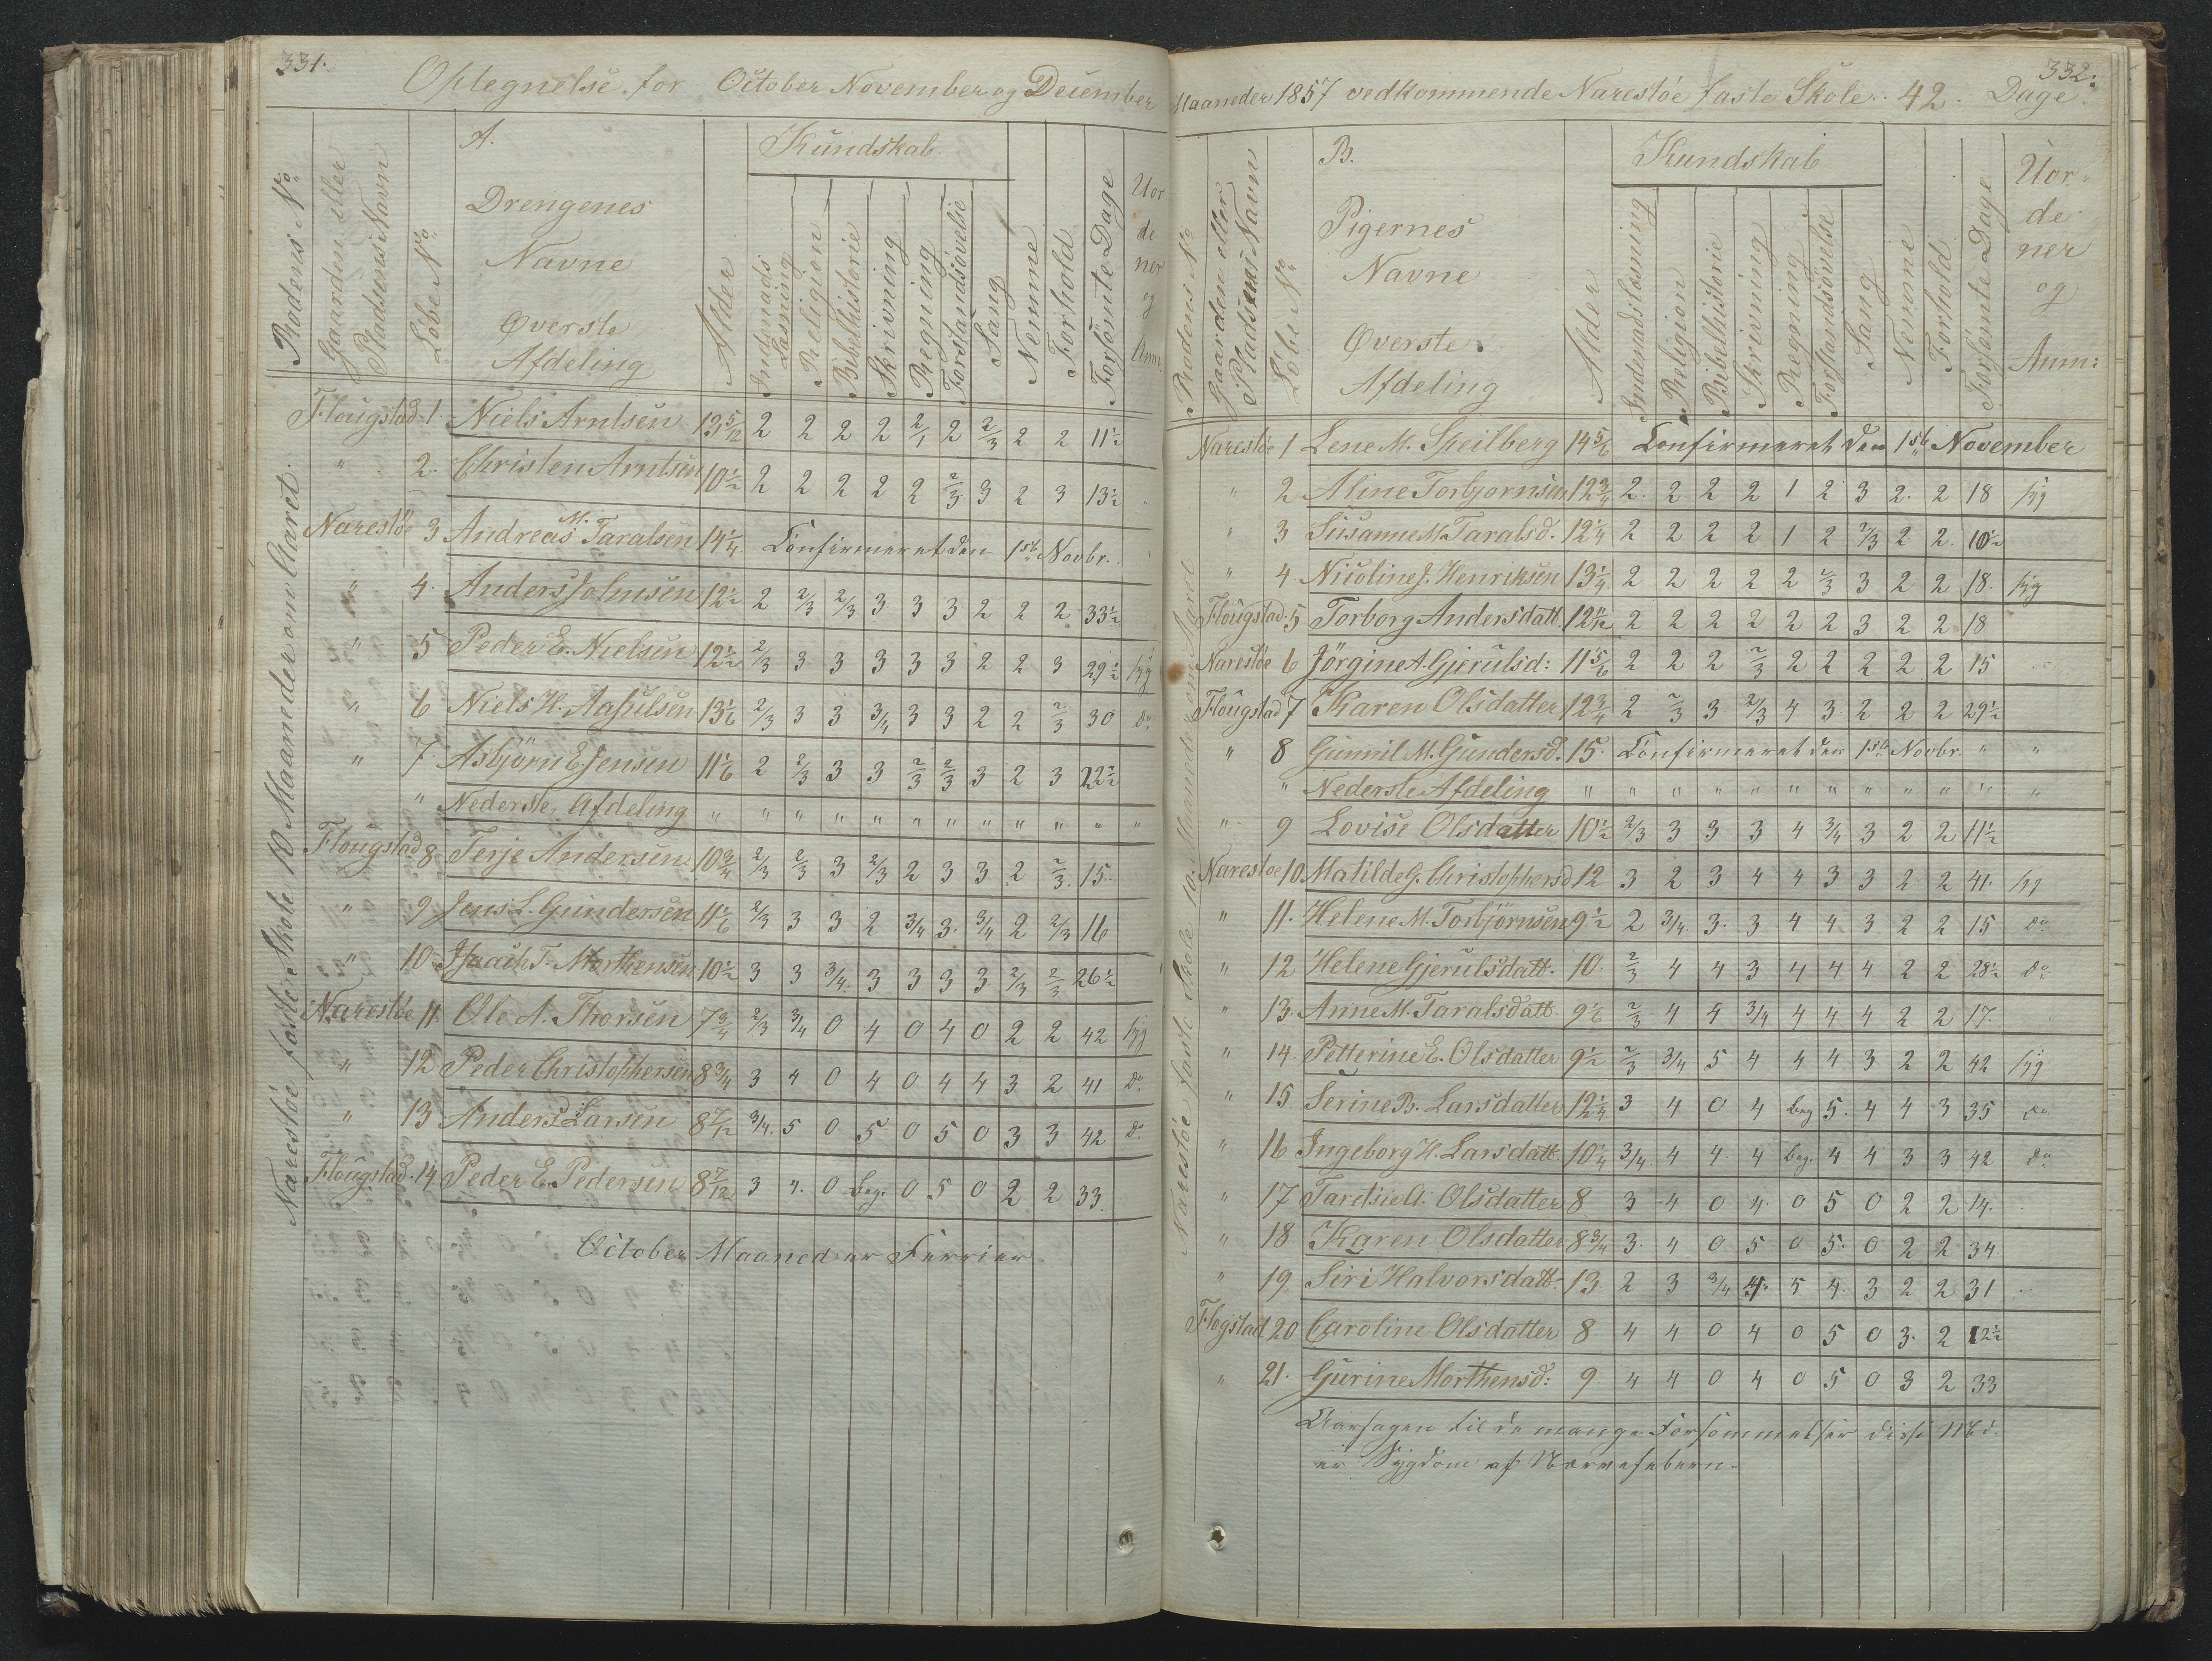 331.
Optegnelse for October November og December
A.
Kundskab
Rodens No
Gaarden eller Pladsens Navn
Löbe No
Drengenes
Navne
Øverste
Afdeling
Alder
Indenads Læsning
Religion
Bibelhistorie
Skrivning
Regning
Forstandsövelse
Sang
Nemme
Forhold
Forsömte Dage
Uor
de
ner
og
Anm.
Narestöe faste Skole 10 Maaneder om Aaret.
Flougstad 1 Niels Arntsen 13 5/12 2 2 2 2 2/1 2 2/3 2 2 11½
" 2. Christen Arntsen 10½ 2 2 2 2 2 2/3 3 2 3 13½
Narestöe 3 Andreas M. Taralsen 14¼ Confirmeret den 1ste Novbr.
" 4. Anders Johnsen 12½ 2 2/3 2/3 3 3 3 2 2 2 33½
" 5 Peder E. Nielsen 12½ 2/3 3 3 3 3 3 2 2 3 29½ syg
" 6 Niels H. Aasulsen 13 1/6 2/3 3 3 3/4 3 3 2 2 2/3 30 do
" 7 Asbjörn E. Jensen 11 1/6 2 2/3 3 3 2/3 2/3 3 2 3 22½
" Nederste Afdeling " " " " " " " " " " " "
Flougstad 8 Terje Andersen 10¾ 2/3 2/3 3 2/3 2 3 3 2 2/3 15
" 9 Jens L. Gundersen 11 1/6 2/3 3 3 2 3/4 3 3/4 2 2/3 16
" 10 Isaack T. Morthensen 10½ 3 3 3/4 3 3 3 3 2/3 2/3 26½
Narestöe 11 Ole A. Thorsen 7¾ 2/3 3/4 0 4 0 4 0 2 2 42 syg
" 12 Peder Christophersen 8¾ 3 4 0 4 0 4 4 3 2 41 do
" 13 Anders Larsen 8 7/12 3/4 5 0 5 0 5 0 3 3 42 do
Flougstad 14 Peder E. Pedersen 8 7/12 3 4 0 Beg. 0 5 0 2 2 33
October Maaned er Ferrier
332.
Maaneder 1857 vedkommende Narestöe faste Skole. 42 Dage.
B.
Kundskab
Rodens No
Gaarden eller Pladsens Navn
Löbe No
Pigernes
Navne
Øverste
Afdeling
Alder
Indenadslæsning
Religion
Bibelhistorie
Skrivning
Regning
Forstandsövelse
Sang
Nemme
Forhold
Forsömte Dage
Uor-
de
ner
og
Anm:
Narestöe faste Skole 10 Maaneder om Aaret
Narestöe 1 Lene M. Speilberg 14 5/6 Confirmeret den 1ste November
" 2 Aline Torbjornsen 12¾ 2 2 2 2 1 2 3 2 2 18 syg
" 3 Susanne M. Taralsd. 12¼ 2 2 2 2 1 2 2/3 2 2 10½
" 4 Nicoline J. Henriksen 13¼ 2 2 2 2 2 2/3 3 2 2 18 syg
Flougstad 5 Torborg Andersdatt. 12 11/12 2 2 2 2 2 2 3 2 2 18
Narestöe 6 Jörgine A. Gjerulsd: 11 5/6 2 2 2 2/3 2 2 2 2 2 15
Flougstad 7 Karen Olsdatter 12¾ 2 2/3 3 2/3 4 3 2 2 2 29½
" 8 Gunnil M. Gundersd. 15 Confirmeret den 1ste Novbr. " "
" Nederste Afdeling " " " " " " " " " " " "
" 9 Lovise Olsdatter 10½ 2/3 3 3 3 4 3/4 3 2 2 11½
Narestoe 10 Matilde G. Christophersd 12 3 2 3 4 4 3 3 2 2 41 syg
" 11. Helene M. Torbjörnsen 9½ 2 3/4 3 3 4 4 3 2 2 15 do
" 12 Helene Gjerulsdatt. 10 2/3 4 4 3 4 4 4 2 2 28½ do
" 13. Anne M. Taralsdatt. 9 1/6 2/3 4 4 3/4 4 4 4 2 2 17
" 14. Petterine E. Olsdatter 9½ 2/3 3/4 5 4 4 4 3 2 2 42 syg
" 15 Serine B. Larsdatter 12¼ 3 4 0 4 Beg 5 4 4 3 35 do
" 16 Ingeborg H. Larsdatt. 10¼ 3/4 4 4 4 Beg. 4 4 3 3 42 do
" 17 Taraline A. Olsdatter 8 3 4 0 4 0 5 0 2 2 14
" 18 Karen Olsdatter 8¾ 3 4 0 5 0 5 0 2 2 34
" 19. Siri Halvorsdatt. 13 2 3 3/4 4 5 4 3 2 2 31
Flogstad 20 Caroline Olsdatter 8 4 4 0 4 0 5 0 3 2 12½
" 21. Gurine Morthensd: 9 4 4 0 4 0 5 0 3 2 33
Aarsagen til de mange Forsömmelser disse
er Sygdom af Nervefeberen.